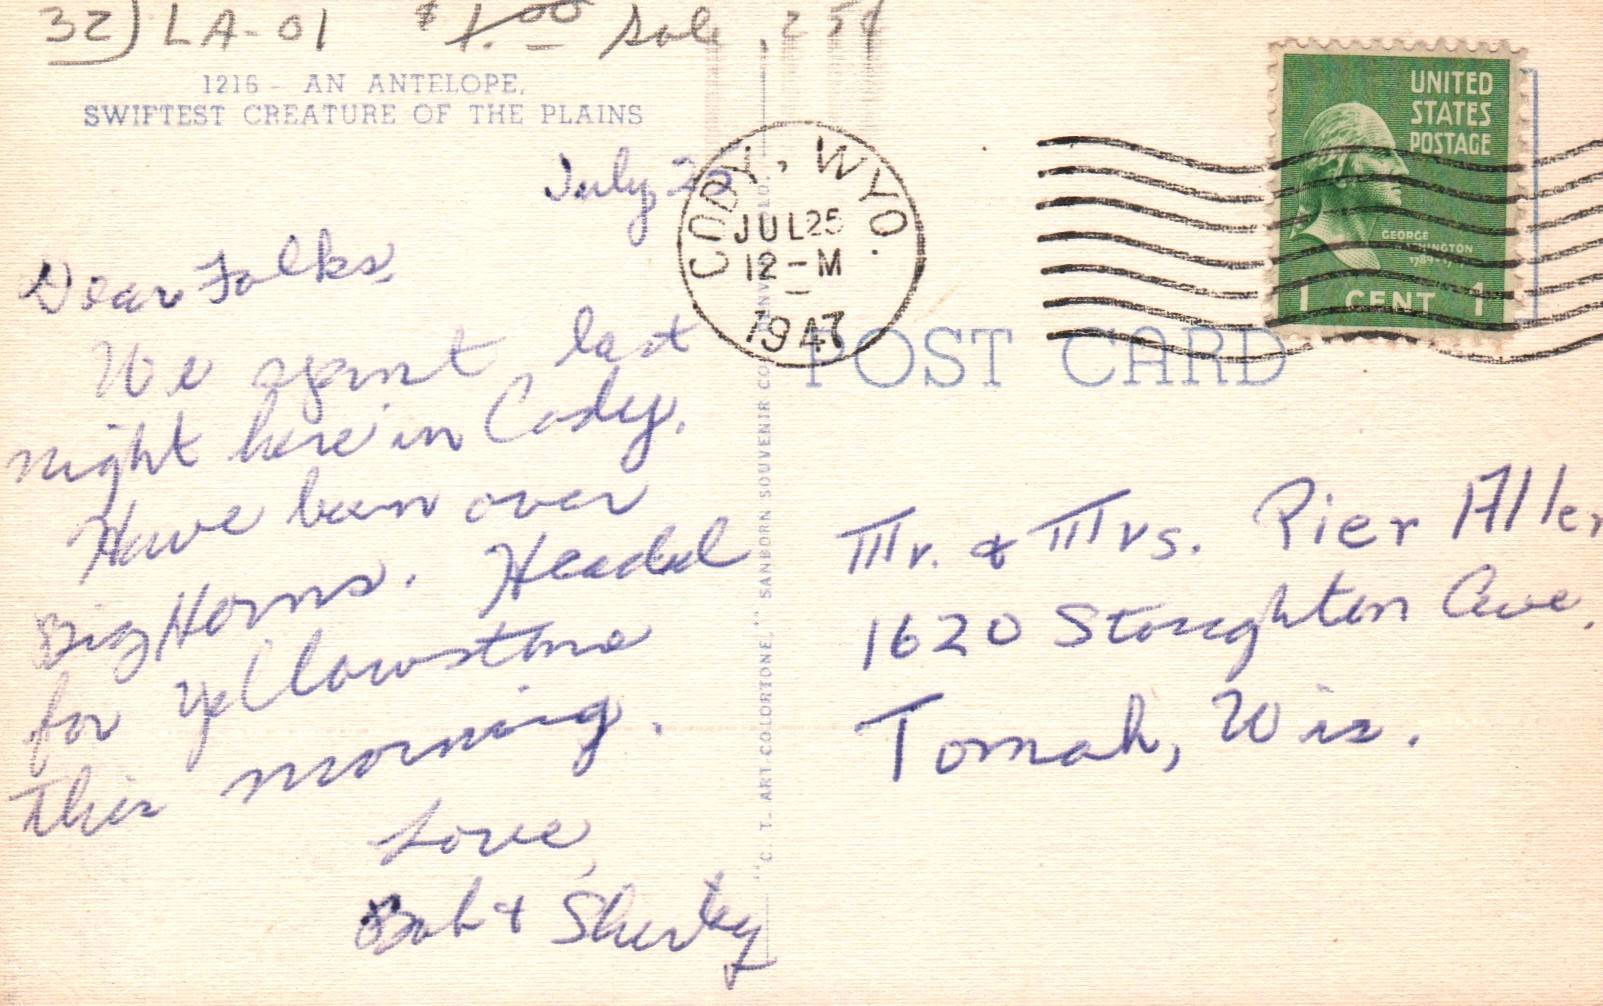 32) LA-01 $1.00 Sale .25¢
1216 - AN ANTELOPE,
SWIFTEST CREATURE OF THE PLAINS
July
Dear Folks,
We spent last
night here in Cody.
Have been over
Big Horns. Headed
for Yellowstone
this morning.
Love,
Bob & Shirley
"C. T. ART-COLORTONE," SANBORN SOUVENIR CO.
CODY, WYO.
JUL 25
12-M
1947
UNITED
STATES
POSTAGE
GEORGE
WASHINGTON
1 CENT 1
POST CARD
Mr. & Mrs. Pier Aller
1620 Stoughton Ave.
Tomah, Wis.